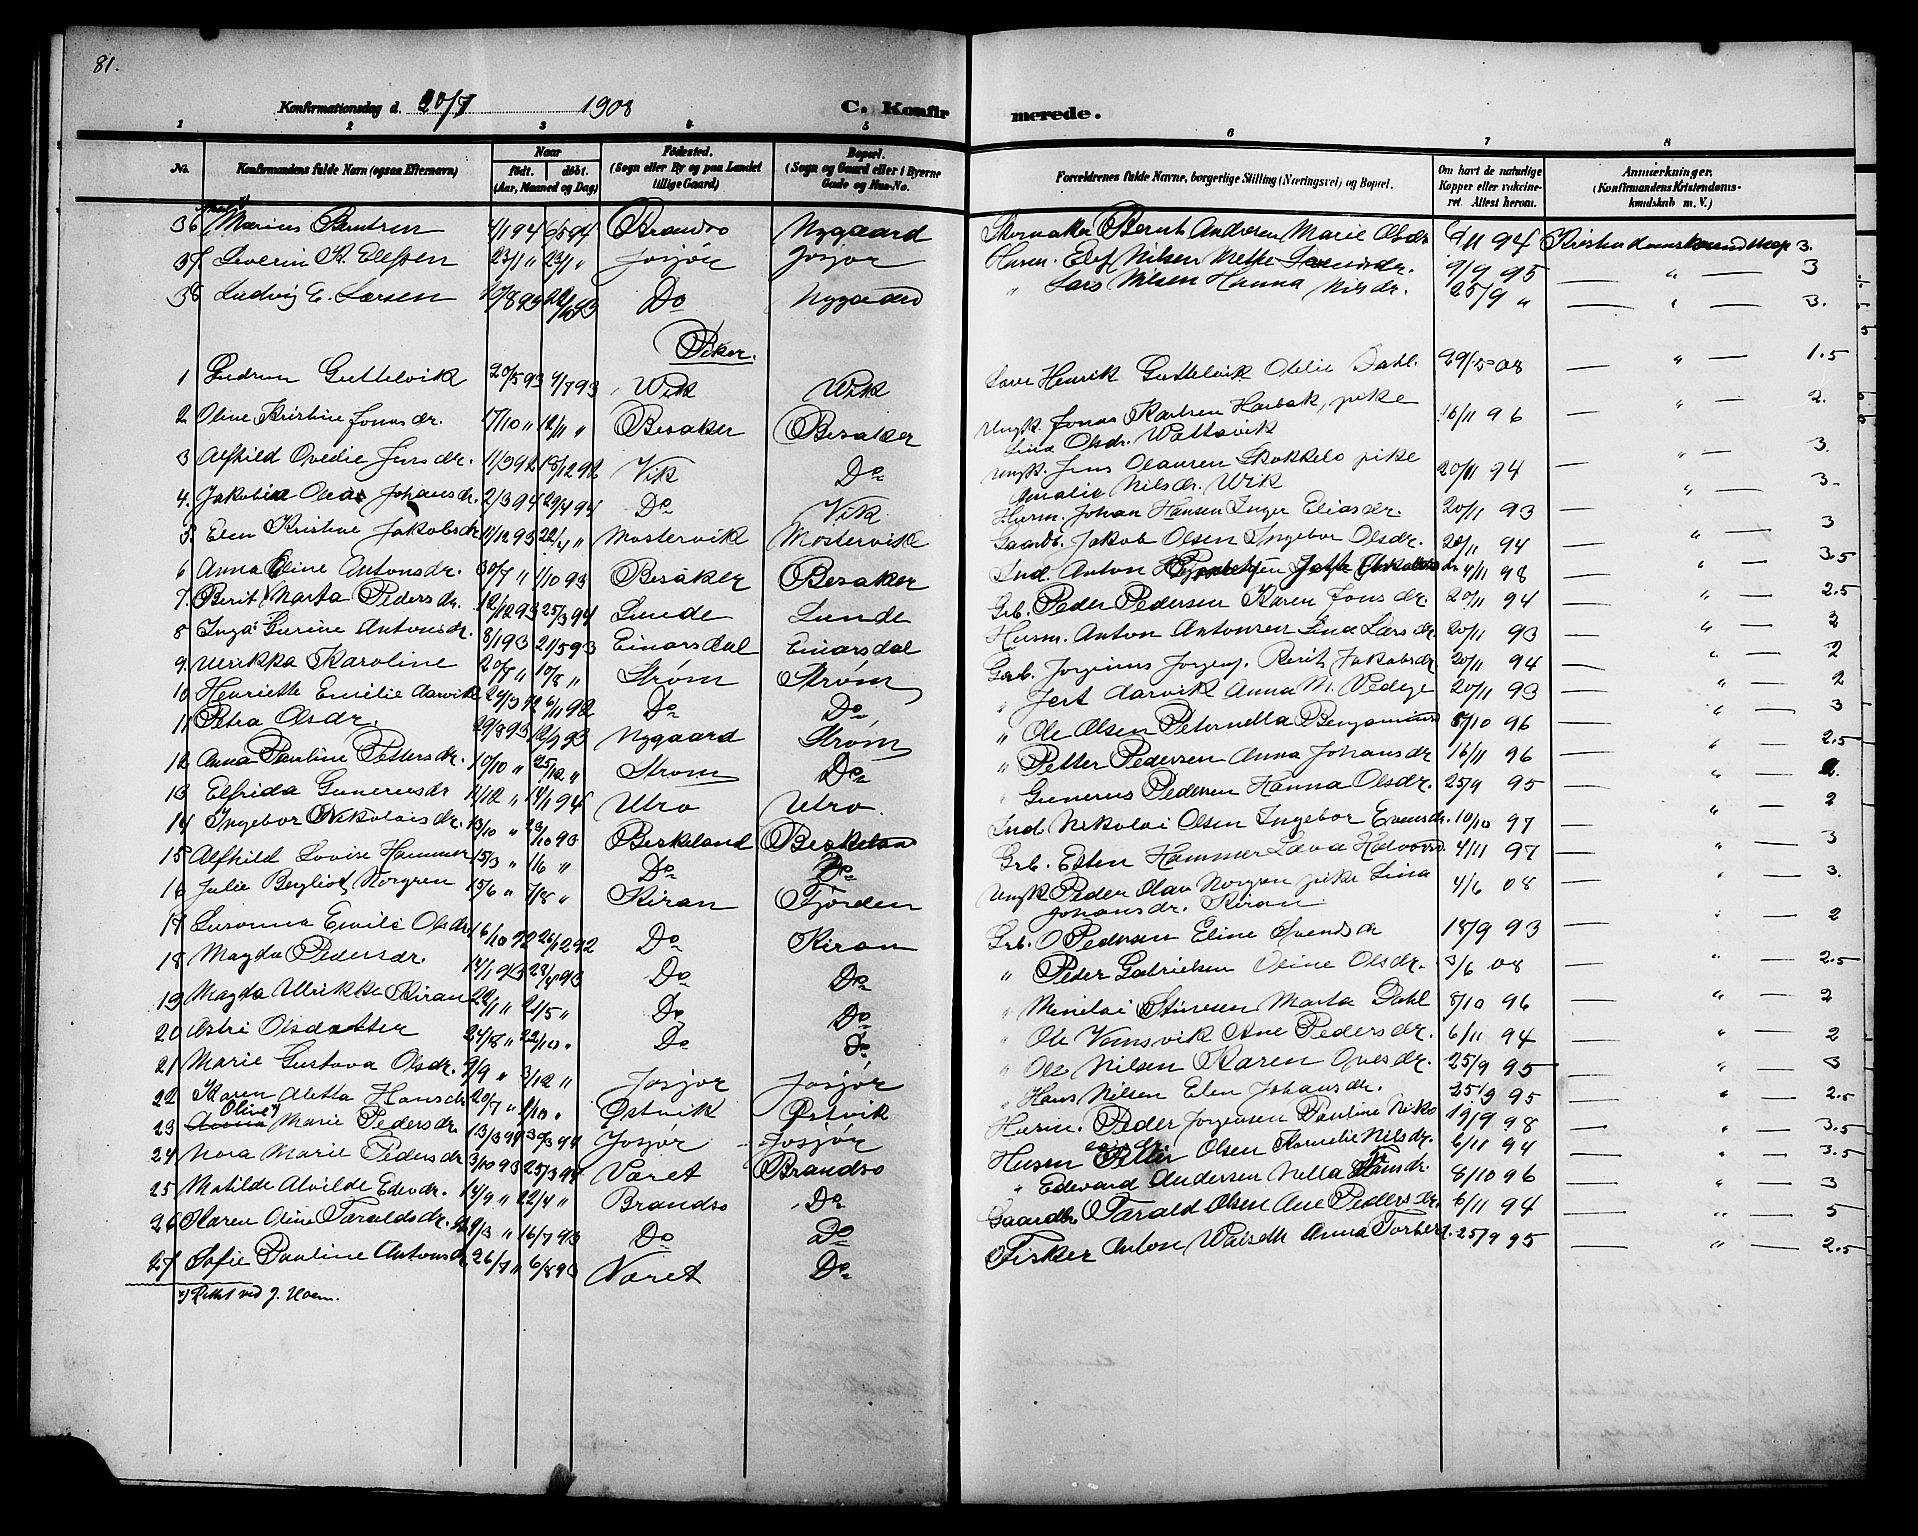 81.
Konfirmationsdag d. 20/7 1908 C. Konfirmerede.
1 2 3 4 5 6 7 8
No. Konfirmandens fulde Navn (ogsaa Efternavn) Naar født. døbt. (Aar, Maaned og Dag) Fødested. (Sogn eller By og paa Landet tillige Gaard) Bopæl. (Sogn og Gaard eller i Byerne Gade og Hus-No. Forældrenes fulde Navne, borgerlige Stilling (Næringsvei) og Bopæl. Om havt de naturlige Kopper eller vaccineret. Attest herom. Anmærkninger, (Konfirmandens Kristendomskundskab m. V.)
36 Marius Berntsen 1/1 94 6/5 94 Brandsø Nygaard Skomaker Bernt Andresen Marie Olsdr. 11 94 Kristendomskundskap 3
37 Severin K. Elefsen 23/1 " 23/1 " Josjør Josjør Husm. Elef Nilsen Mette 9/9 95 " 3
38 Ludvig E. Larsen 8 93 93 Do Nygaard " Lars Nilsen Hanna Nilsdr. 25/9 " " 3.
Piker.
1 Gudrun Guttelvik 20/5 93 4/7 93 Wik Wik Henrik Guttelvik Otelie Dahl. 29/5 08 " 1.5
2 Oline Kristine Jonasdr. 17/10 " 12/11 " Besaker Besaker Ungk. Jonas Karlsen Harbak, pike 16/11 96 " 2.
Lina Olsdr. Wattavik
3 Alfhild Ovedie Jensdr. 11/3 92 18/12 92 Vik Do Ungk. Jens Olausen Skokkelo pike 20/11 94 " 3.
Amalie Nilsdr. Wik
4. Jakobia Olea Johansdr. 2/3 94 29/4 94 Do Vik Husm. Johan Hansen Inger Eliasdr. 20/11 93 " 3.
5. Elen Kristine Jakobsdr. 11/12 93 22/4 " Mostervik Mostervik Gaardb. Jakob Olsen Ingebor Olsdr. 20/11 94 " 3
6 Anna Eline Antonsdr. 30/7 " 1/10 93 Besaker Besaker Ind. Anton 4/11 98 " 3.5
7. Berit Marta Pedersdr. 12/12 93 25/3 94 Lunde Lunde Grb. Peder Pedersen Karen Jonsdr. 20/11 94 " 2.5
8 Inga Gurine Antonsdr. 8/1 93 21/5 93 Einarsdal Einarsdal Husm. Anton Antonsen Lina Larsdr 20/11 93 " 2
9. Ulrikka Karoline 20/7 " 10/8 " Strøm Strøm Grb. Jorginus Jorgens. Berit Jakobsdr 20/11 94 " 2
10 Henriette Emilie Aarvik 29/3 92 6/11 92 Do Do " Jert Aarvik Anna M. 20/11 93 " 2
11 Petra Olsdr. 29/8 93 2/9 93 Nygaard Strøm " Ole Olsen Peternella Benjaminsd 8/10 96 " 3
12 Anna Pauline Pettersdr. 10/10 " 25/12 " Strøm Do " Petter Pedersen Anna Johansdr 16/11 96 " 2.5
13 Elfrida Gunerusdr 11/12 " 14/1 94 Utro Utro. " Gunerus Pedersen Hanna Olsdr. 25/9 95 " 2.
14 Ingebor Nikolaisdr. 13/10 " 29/10 93 Beskeland Beskeland Ind. Nikolai Olsen Ingebor Evensdr. 10/10 97 " 2
15 Alfhild Lovise Hammer 15/3 " 1/6 " Do Do Grb. Esten Hammer Lava 4/11 97 " 3
16 Julie Bergliot Norgren 15/6 " 7/8 " Kiran Fjorden Ungk Peder Olav Norgren pike Lina 4/6 08 " 3.
Johansdr. Kiran
17 Susanna Emilie Olsdr. 16/10 92 26/12 92 Do Kiran Grb. O Pedersen Eline Svendsdr 18/9 93 " 2
18 Magda Pedersdr. 14/1 93 23/4 93 Do Do " Peder Gabrielsen Oline Olsdr. 3/6 08 " 2.5
19 Magda Ulrikke Kiran 22/1 " 21/5 " Do Do " Menilai Marta Dahl 8/10 96 " 2
20 Astri Olsdatter 24/8 " 22/10 " Do Do " Ole Vemsvik Ane Pedersdr. 6/11 94 " 2
21 Marie Gustava Olsdr. 9/9 " 3/12 " Josjør Josjør " Ole Nilsen Karen Ovesdr. 25/9 95 " 3
22 Karen Aletta Hansdr 20/7 " 1/10 " Østvik Østvik " Hans Nilsen Elen Johansdr. 25/9 95 " 2.5
23 Anna Oline *) Marie Pedersdr. 13/3 94 30/3 94 Josjør Josjør Husm. Peder Jorgensen Pauline Niko 19/9 98 " 3.5
24 Nora Marie Pedersdr 3/10 93 25/3 94 Varet Brandsø Husm Petter Olsen Kornelie Nilsdr. 6/11 94 " 3.5
25 Matilde Alvilde Edevdr. 14/9 " 22/4 " Brandsø Do " Edevard Andersen Nella 8/10 96 " 3
26 Karen Oline Faraldsdr. 9/3 " 16/7 93 Do Do Gaardbr Farald Olsen Ane Pedersdr. 6/11 94 " 5
27 Sofie Pauline Antonsdr 26/7 " 6/8 93 Varet Do Fisker Anton Walseth Anna Torberd. 25/9 95 " 2.5
*) Rettet ved J. Hoem.